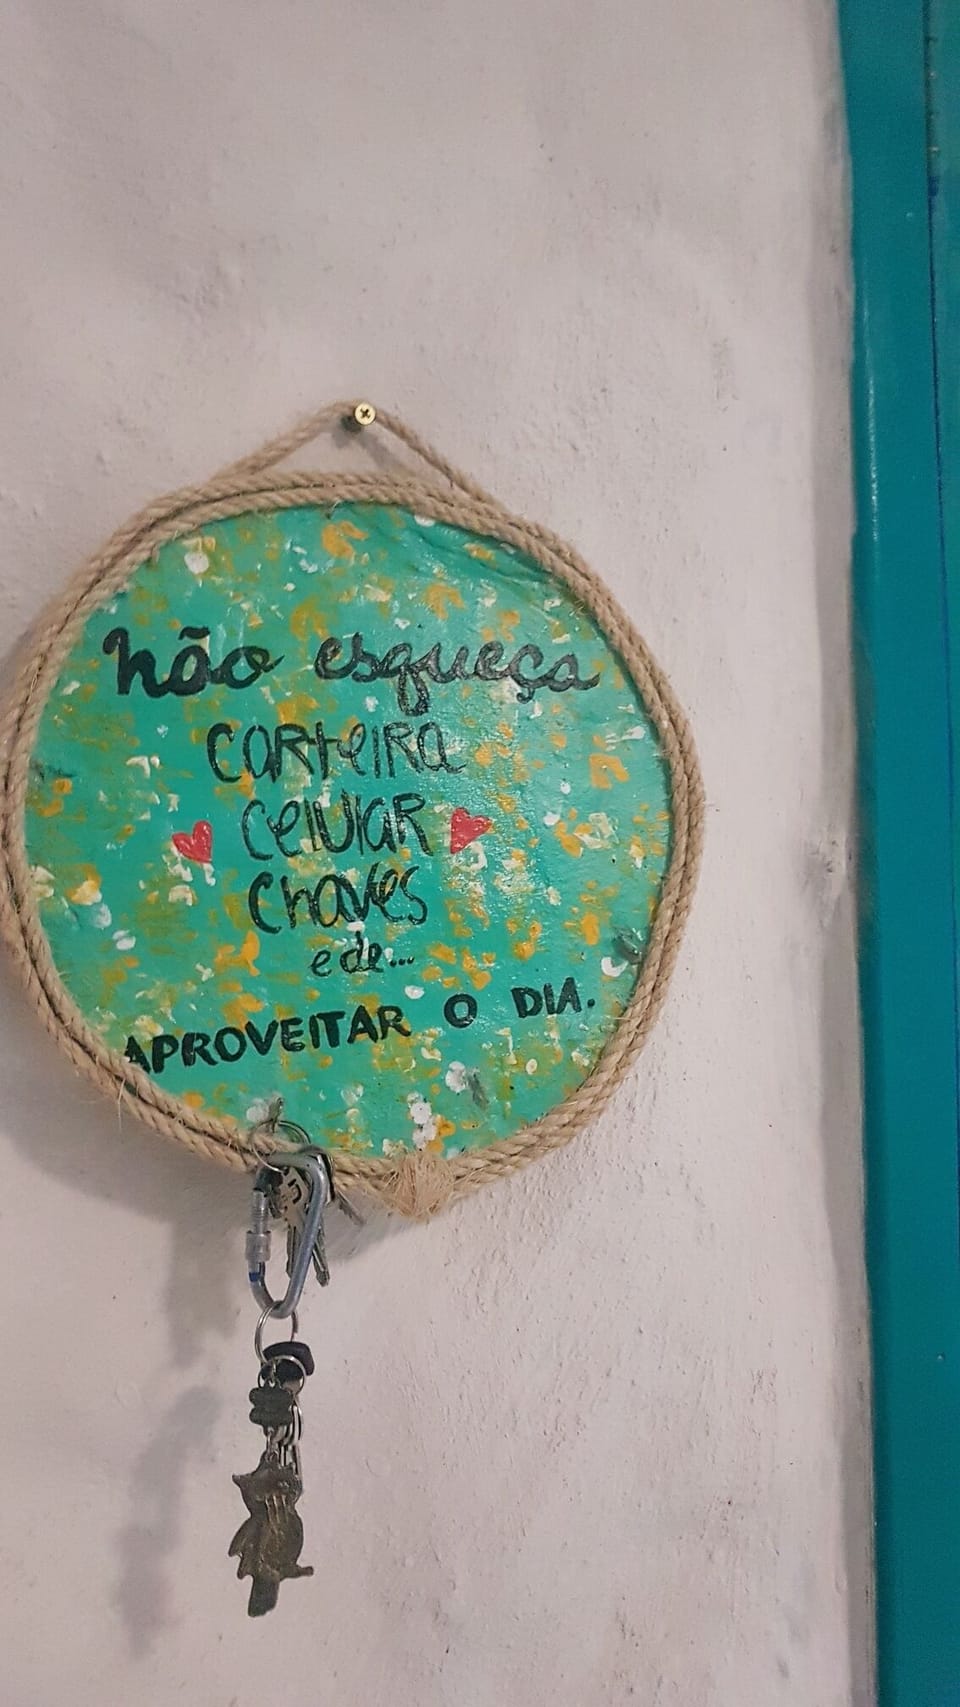 não esqueça
carteira
celular
chaves
e de...
APROVEITAR O DIA.